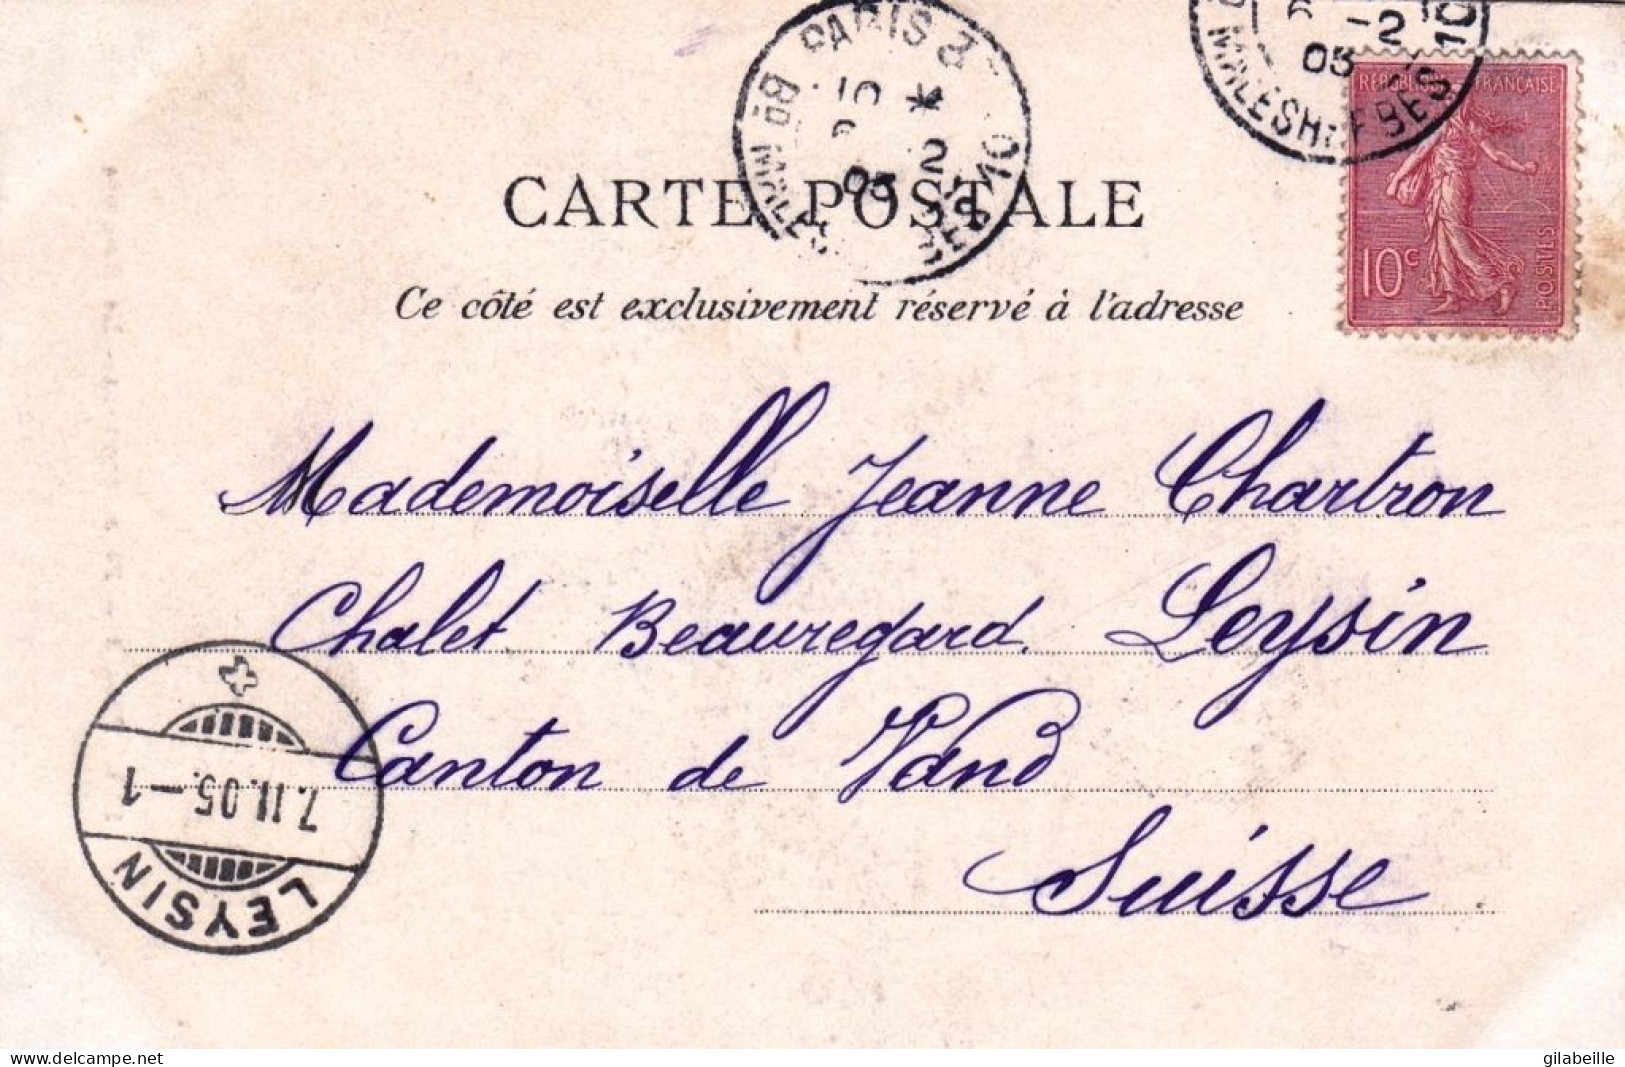 PARIS
Bd MALESHERBES 10
-2
05
RÉPUBLIQUE FRANÇAISE
10c
POSTES
CARTE POSTALE
Ce côté est exclusivement réservé à l'adresse
Mademoiselle Jeanne Chartron
Chalet Beauregard. Leysin
Canton de Vaud
Suisse
7.II.05.-1
LEYSIN
delcampe.net
gilabeille